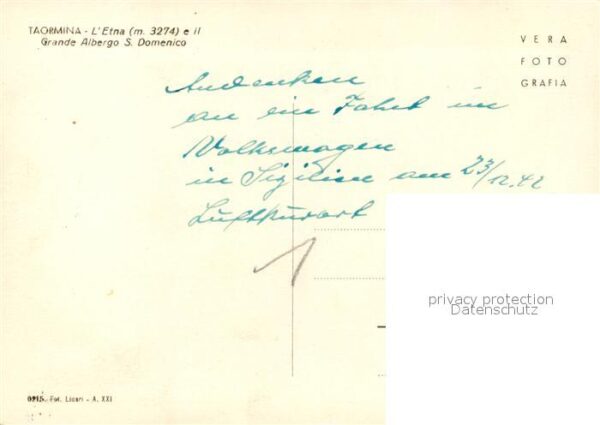 TAORMINA - L'Etna (m. 3274) e il
Grande Albergo S. Domenico
VERA
FOTO
GRAFIA
Andenken
an ein Fahrt im
Volkswagen
in Sizilien am 23/12.42
Luftkurort
privacy protection
Datenschutz
Fot. Licari - A. XXI